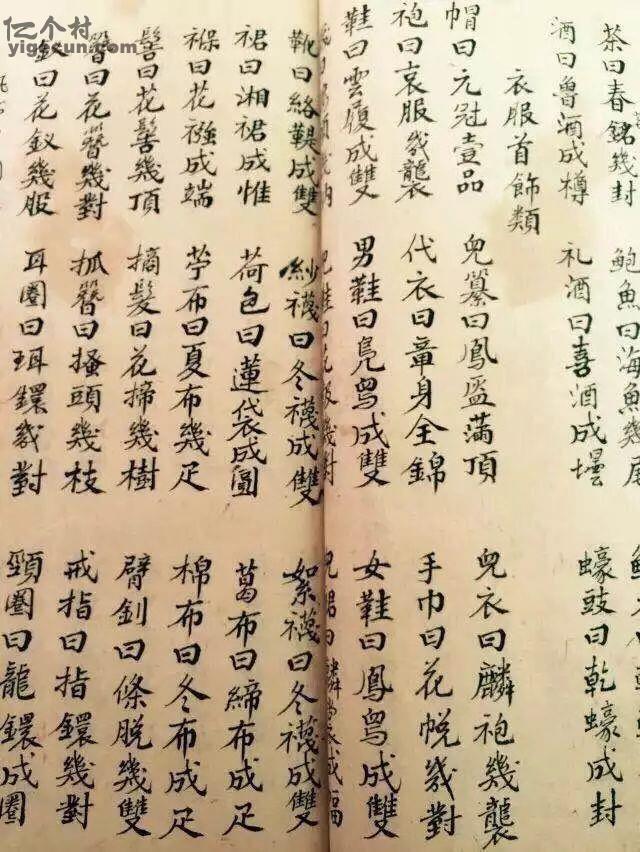 亿个村
yigecun.com
茶曰春銘幾封 鮑魚曰海魚幾尾
酒曰魯酒成樽 礼酒曰喜酒成壜 蠔豉曰乾蠔成封
衣服首飾類
帽曰元冠壹品 兒纂曰鳳盔满頂 兒衣曰麟袍幾襲
袍曰袞服幾襲 代衣曰章身全錦 手巾曰花帨幾對
鞋曰雲履成雙 男鞋曰鳧舄成雙 女鞋曰鳳舄成雙
靴曰絡鞮成雙 紗襪曰冬襪成雙 絮襪曰冬襪成雙
裙曰湘裙成惟 荷包曰蓮袋成圓 葛布曰締布成疋
褓曰花襁成端 苧布曰夏布幾疋 棉布曰冬布成疋
髻曰花髻幾頂 摘髮曰花掃幾樹 臂釧曰條脱幾雙
簪曰花簪幾對 抓簪曰搔頭幾枝 戒指曰指鐶幾對
釵曰花釵幾服 耳圈曰珥鐶幾對 頸圈曰龍鐶成圈